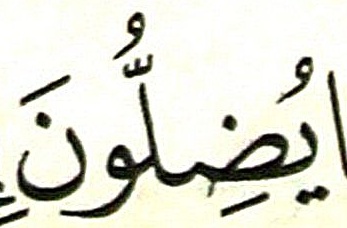 يُضِلُّونَ